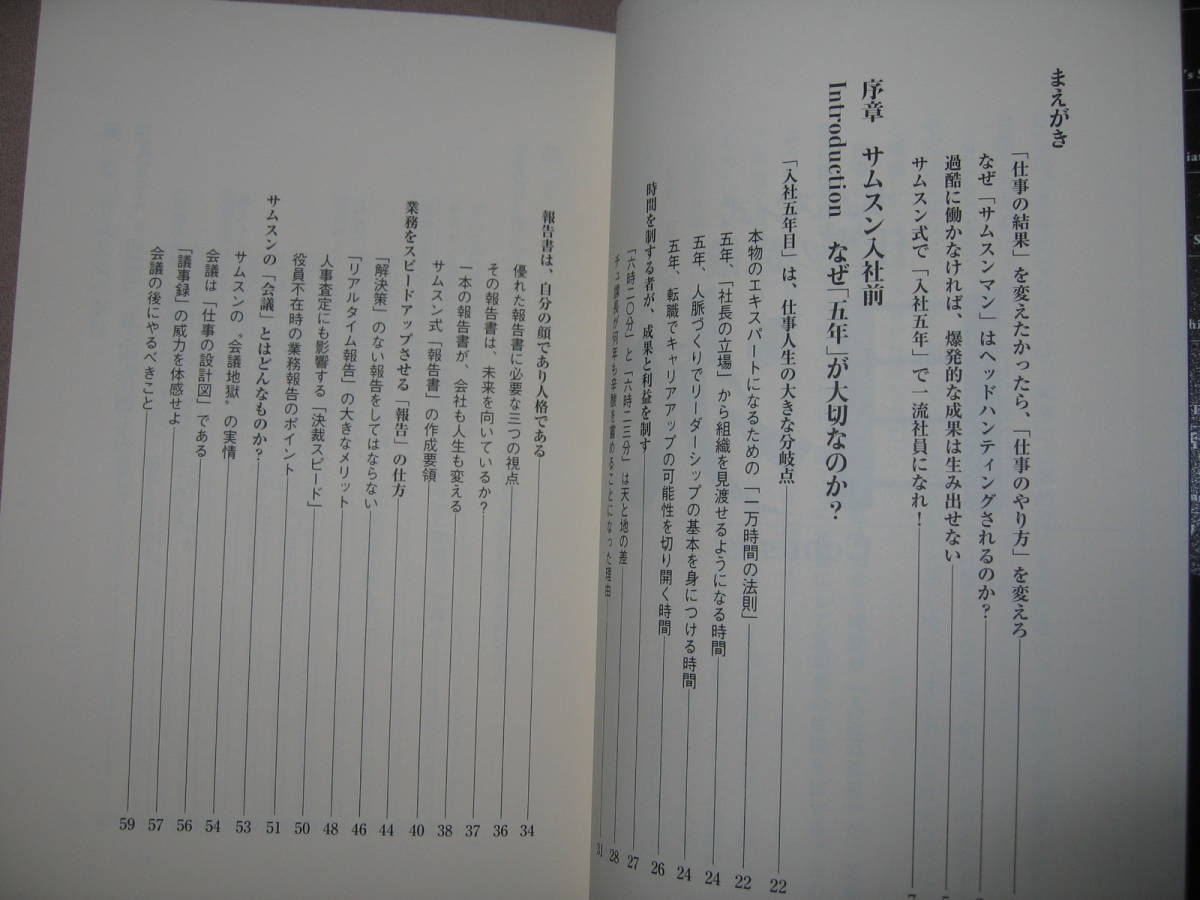 まえがき
「仕事の結果」を変えたかったら、「仕事のやり方」を変えろ
なぜ「サムスンマン」はヘッドハンティングされるのか?
過酷に働かなければ、爆発的な成果は生み出せない
サムスン式で「入社五年」で一流社員になれ!
序章 サムスン入社前
Introduction なぜ「五年」が大切なのか?
「入社五年目」は、仕事人生の大きな分岐点 22
本物のエキスパートになるための「一万時間の法則」 22
五年、「社長の立場」から組織を見渡せるようになる時間 24
五年、人脈づくりでリーダーシップの基本を身につける時間 24
五年、転職でキャリアアップの可能性を切り開く時間 26
時間を制する者が、成果と利益を制す 27
「六時二〇分」と「六時二三分」は天と地の差 28
チュ課長が何年も辛酸を嘗めることになった理由 31
報告書は、自分の顔であり人格である 34
優れた報告書に必要な三つの視点 36
その報告書は、未来を向いているか? 37
一本の報告書が、会社も人生も変える 38
サムスン式「報告書」の作成要領 40
業務をスピードアップさせる「報告」の仕方 44
「解決策」のない報告をしてはならない 46
「リアルタイム報告」の大きなメリット 48
人事査定にも影響する「決裁スピード」 50
役員不在時の業務報告のポイント 51
サムスンの「会議」とはどんなものか? 53
サムスンの〝会議地獄〟の実情 54
会議は「仕事の設計図」である 56
「議事録」の威力を体感せよ 57
会議の後にやるべきこと 59